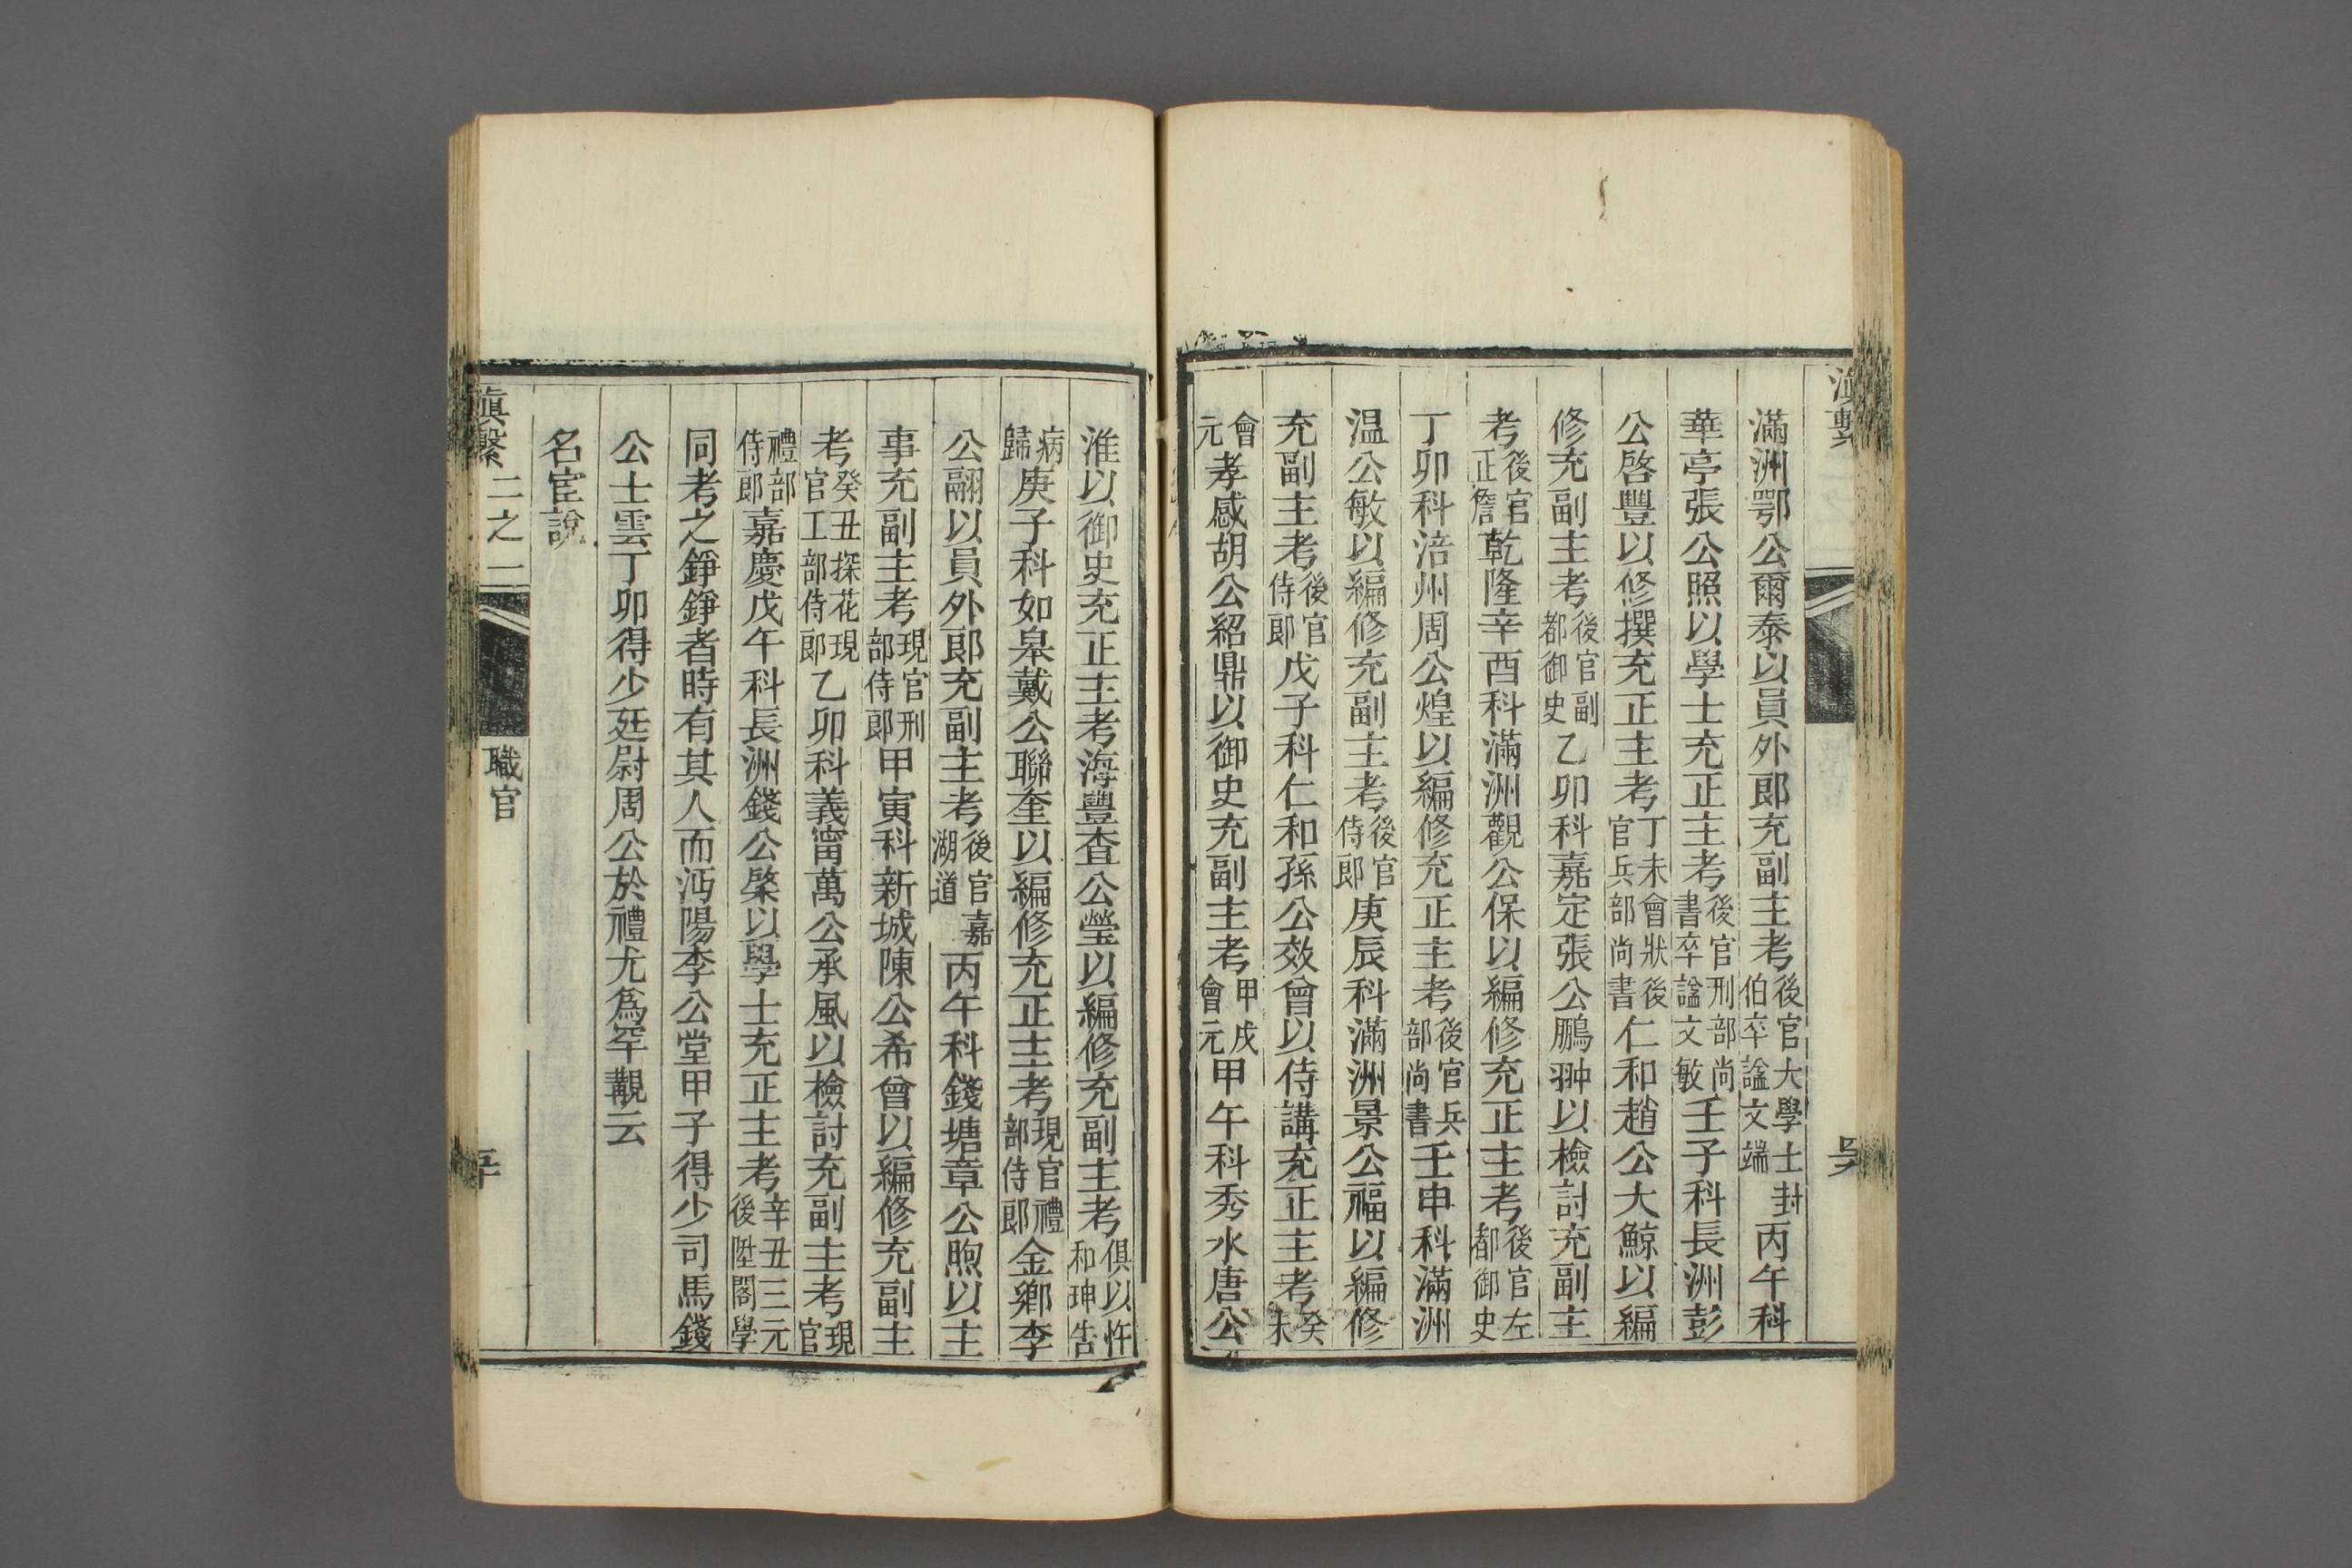 滿洲鄂公爾泰以員外郎充副主考後官大學士封伯卒諡文端丙午科
華亭張公照以學士充正主考後官刑部尚書卒諡文敏壬子科長洲彭
公啓豐以修撰充正主考丁未會狀後官兵部尚書仁和趙公大鯨以編
修充副主考後官副都御史乙卯科嘉定張公鵬翀以檢討充副主
考後官正詹乾隆辛酉科滿洲觀公保以編修充正主考後官左都御史
丁卯科涪州周公煌以編修充正主考後官兵部尚書壬申科滿洲
温公敏以編修充副主考後官侍郎庚辰科滿洲景公福以編修
充副主考後官侍郎戊子科仁和孫公效曾以侍講充正主考癸未
會元孝感胡公紹鼎以御史充副主考甲戌會元甲午科秀水唐公
淮以御史充正主考海豐查公瑩以編修充副主考俱以忤和珅告
病歸庚子科如皋戴公聯奎以編修充正主考現官禮部侍郎金鄉李
公翮以員外郎充副主考後官嘉湖道丙午科錢塘章公煦以主
事充副主考現官刑部侍郎甲寅科新城陳公希曾以編修充副主
考癸丑探花現官工部侍郎乙卯科義甯萬公承風以檢討充副主考現官
禮部侍郎嘉慶戊午科長洲錢公棨以學士充正主考辛丑三元後陞閣學
同考之錚錚者時有其人而沔陽李公堂甲子得少司馬錢
公士雲丁卯得少廷尉周公於禮尤爲罕覯云
名宦說
滇繫 二之二 職官